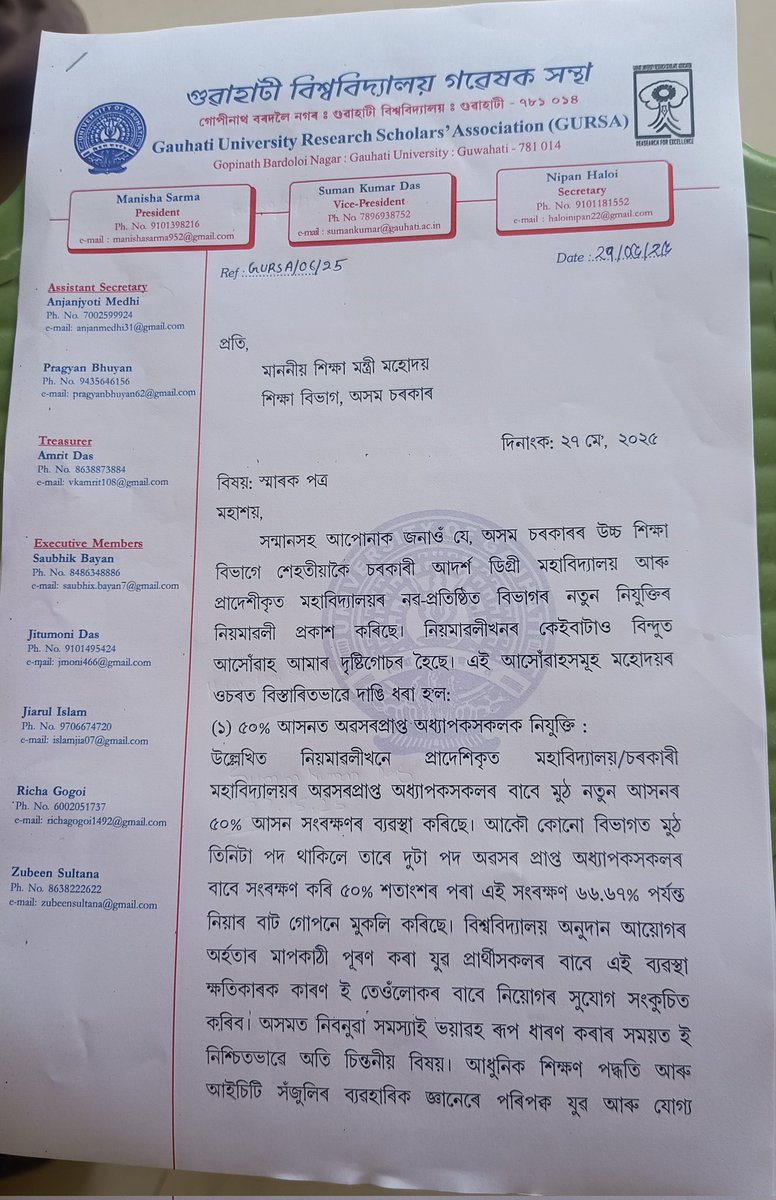 গুৱাহাটী বিশ্ববিদ্যালয় গৱেষক সন্থা
গোপীনাথ বৰদলৈ নগৰ : গুৱাহাটী বিশ্ববিদ্যালয় : গুৱাহাটী - ৭৮১ ০১৪
Gauhati University Research Scholars' Association (GURSA)
Gopinath Bardoloi Nagar : Gauhati University : Guwahati - 781 014
UNIVERSITY OF GAUHATI
RESEARCH FOR EXCELLENCE
Manisha Sarma
President
Ph. No. 9101398216
e-mail : manishasarma952@gmail.com
Suman Kumar Das
Vice-President
Ph. No 7896938752
e-mail : sumankumar@gauhati.ac.in
Nipan Haloi
Secretary
Ph. No. 9101181552
e-mail : haloinipan22@gmail.com
Ref : GURSA/06/25
Date : 29/05/25
Assistant Secretary
Anjanjyoti Medhi
Ph. No. 7002599924
e-mail: anjanmedhi31@gmail.com
Pragyan Bhuyan
Ph. No. 9435646156
e-mail: pragyanbhuyan62@gmail.com
Treasurer
Amrit Das
Ph. No. 8638873884
e-mail: vkamrit108@gmail.com
Executive Members
Saubhik Bayan
Ph. No. 8486348886
e-mail: saubhix.bayan7@gmail.com
Jitumoni Das
Ph. No. 9101495424
e-mail: jmoni466@gmail.com
Jiarul Islam
Ph. No. 9706674720
e-mail: islamjia07@gmail.com
Richa Gogoi
Ph. No. 6002051737
e-mail: richagogoi1492@gmail.com
Zubeen Sultana
Ph. No. 8638222622
e-mail: zubeensultana@gmail.com
প্ৰতি,
মাননীয় শিক্ষা মন্ত্ৰী মহোদয়
শিক্ষা বিভাগ, অসম চৰকাৰ
দিনাংক: ২৭ মে', ২০২৫
বিষয়: স্মাৰক পত্ৰ
মহাশয়,
সন্মানসহ আপোনাক জনাওঁ যে, অসম চৰকাৰৰ উচ্চ শিক্ষা
বিভাগে শেহতীয়াকৈ চৰকাৰী আদৰ্শ ডিগ্ৰী মহাবিদ্যালয় আৰু
প্ৰাদেশীকৃত মহাবিদ্যালয়ৰ নৱ-প্ৰতিষ্ঠিত বিভাগৰ নতুন নিযুক্তিৰ
নিয়মাৱলী প্ৰকাশ কৰিছে। নিয়মাৱলীখনৰ কেইবাটাও বিন্দুত
আসোঁৱাহ আমাৰ দৃষ্টিগোচৰ হৈছে। এই আসোঁৱাহসমূহ মহোদয়ৰ
ওচৰত বিস্তাৰিতভাৱে দাঙি ধৰা হ'ল:
(১) ৫০% আসনত অৱসৰপ্ৰাপ্ত অধ্যাপকসকলক নিযুক্তি :
উল্লেখিত নিয়মাৱলীখনে প্ৰাদেশিকৃত মহাবিদ্যালয়/চৰকাৰী
মহাবিদ্যালয়ৰ অৱসৰপ্ৰাপ্ত অধ্যাপকসকলৰ বাবে মুঠ নতুন আসনৰ
৫০% আসন সংৰক্ষণৰ ব্যৱস্থা কৰিছে। আকৌ কোনো বিভাগত মুঠ
তিনিটা পদ থাকিলে তাৰে দুটা পদ অৱসৰ প্ৰাপ্ত অধ্যাপকসকলৰ
বাবে সংৰক্ষণ কৰি ৫০% শতাংশৰ পৰা এই সংৰক্ষণ ৬৬.৬৭% পৰ্যন্ত
নিয়াৰ বাট গোপনে মুকলি কৰিছে। বিশ্ববিদ্যালয় অনুদান আয়োগৰ
অৰ্হতাৰ মাপকাঠী পূৰণ কৰা যুৱ প্ৰাৰ্থীসকলৰ বাবে এই ব্যৱস্থা
ক্ষতিকাৰক কাৰণ ই তেওঁলোকৰ বাবে নিয়োগৰ সুযোগ সংকুচিত
কৰিব। অসমত নিবনুৱা সমস্যাই ভয়াৱহ ৰূপ ধাৰণ কৰাৰ সময়ত ই
নিশ্চিতভাৱে অতি চিন্তনীয় বিষয়। আধুনিক শিক্ষণ পদ্ধতি আৰু
আইচিটি সঁজুলিৰ ব্যৱহাৰিক জ্ঞানেৰে পৰিপক্ক যুৱ আৰু যোগ্য